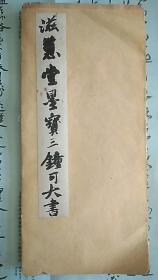 滋蕙堂墨寶三鐘可大書